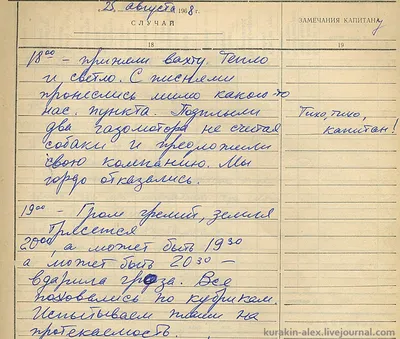 25 августа 1968 г.
СЛУЧАЙ
ЗАМЕЧАНИЯ КАПИТАНА
18
19
18⁰⁰ – приняли вахту. Тепло
и светло. С песнями
пронеслись мимо какого-то
нас. пункта. Подплыли
два газомотора не считая
собаки и предложили
свою компанию. Мы
гордо отказались.
Тихо, тихо,
капитан!
19⁰⁰ – Гром гремит, земля
трясется
20⁰⁰, а может быть 19³⁰
а может быть 20³⁰ –
вдарила гроза. Все
поховались по кубрикам.
Испытываем плащи на
протекаемость.
kurakin-alex.livejournal.com